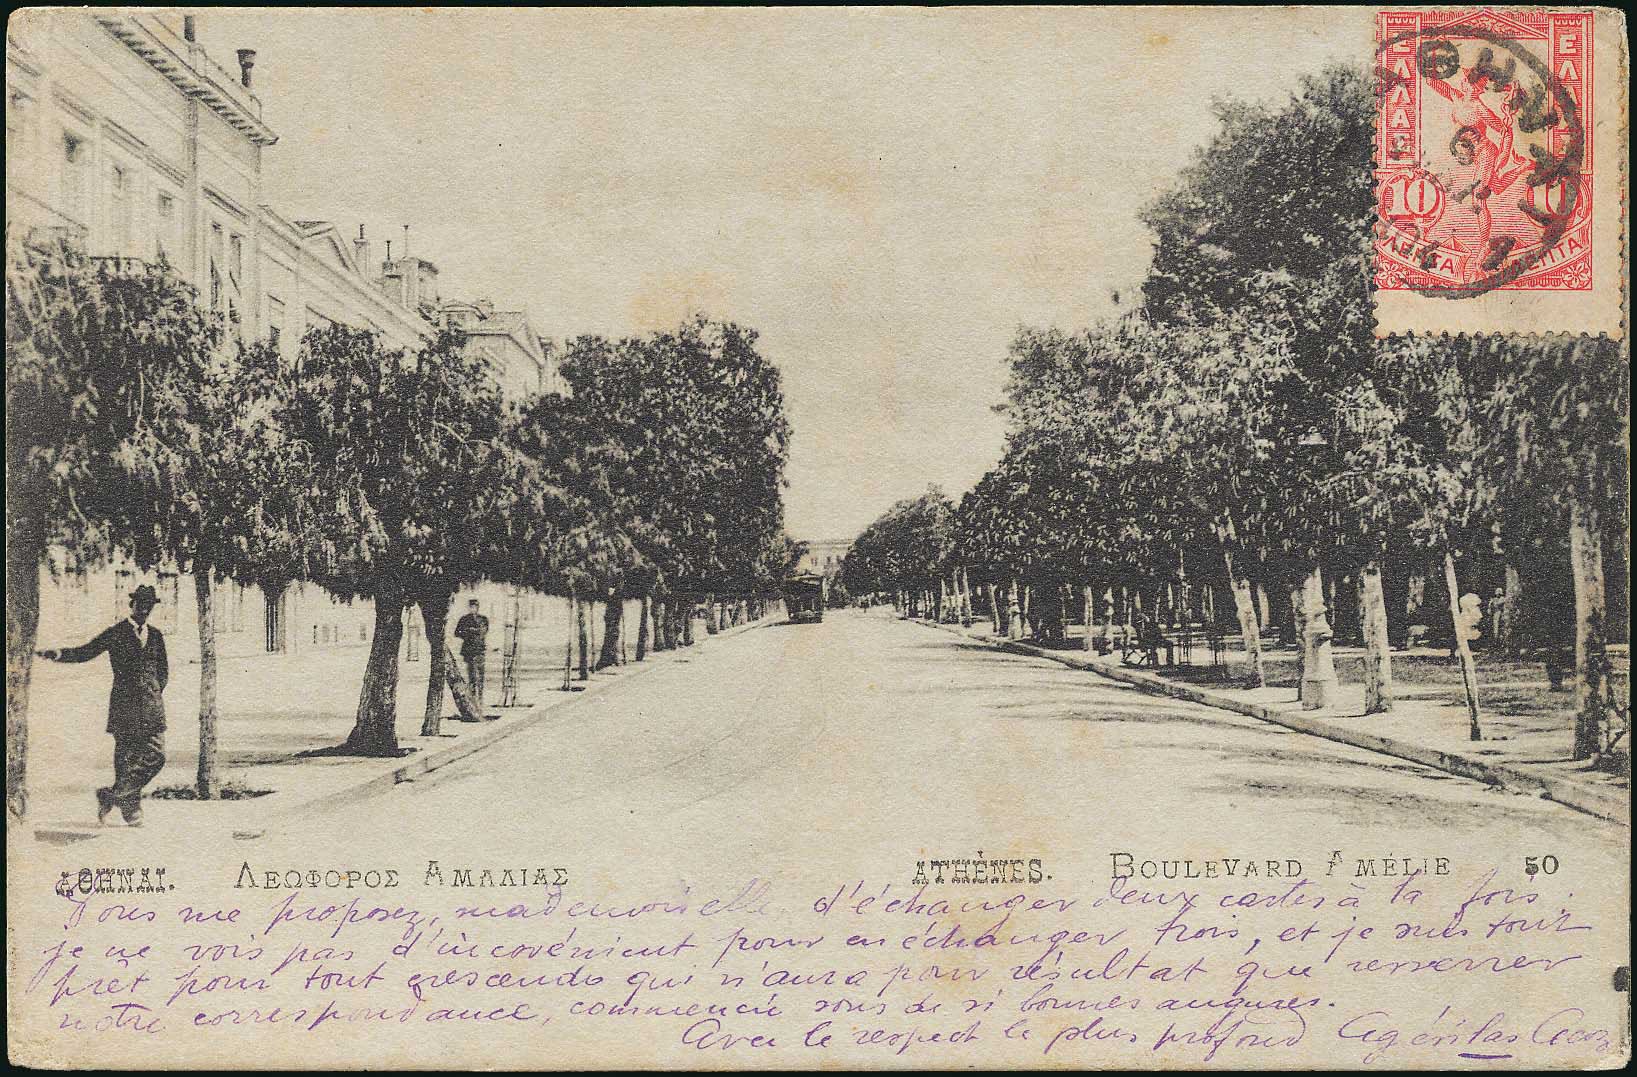 ΕΛΛΑΣ
ΑΘΗΝΑΙ
10
ΛΕΠΤΑ ΛΕΠΤΑ
ΑΘΗΝΑΙ. ΛΕΩΦΟΡΟΣ ΑΜΑΛΙΑΣ ATHÈNES. BOULEVARD AMÉLIE 50
Vous me proposez, mademoiselle d'échanger deux cartes à la fois.
je ne vois pas d'incovénient pour en échanger trois, et je suis tout
prêt pour tout crescendo qui n'aura pour résultat que resserrer
notre correspondance, commencée sous de si bonnes augures.
Avec le respect le plus profond